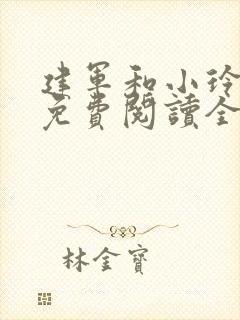 建軍和小玲
免費閱讀全
林金寶